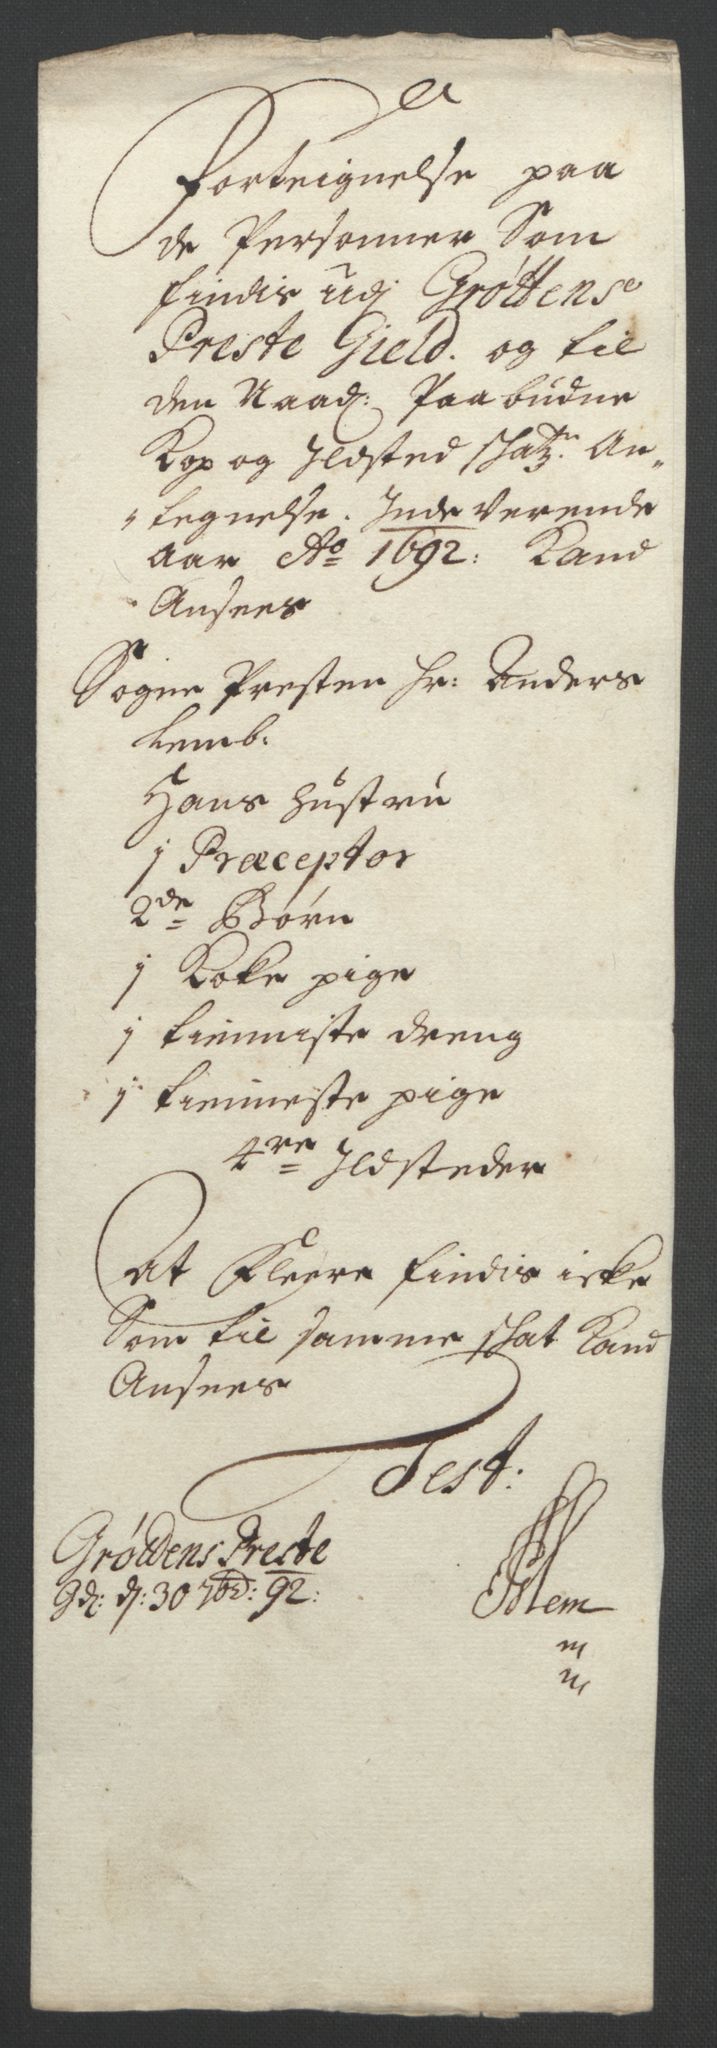 Forteignelse paa
de Personner Som
findis udj Grøttens
Preste Gield. og til
den Naad: Paabudne
Kop og Ildsted schatz: An„
„tegnelse. Inde Verende
aar Ao 1692: Kand
Ansees
Sogne Presten hr: Anders
Lemb.
Hans hustru
1 Præceptor
2de Børn
1 Koke pige
1 tienniste dreng
1 tienneste pige
4re Ildsteder
At Fleere findis icke
Som til samme schat Kand
Ansees
Test:
Grøttens Preste
Gd: d: 30 7bd: 92: